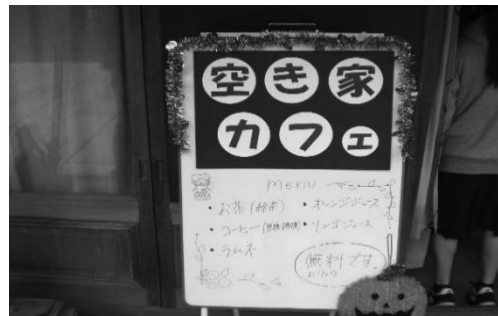 空き家
カフェ
menu
・お茶(緑茶) ・オレンジジュース
・コーヒー ・リンゴジュース
・ラムネ
無料です。